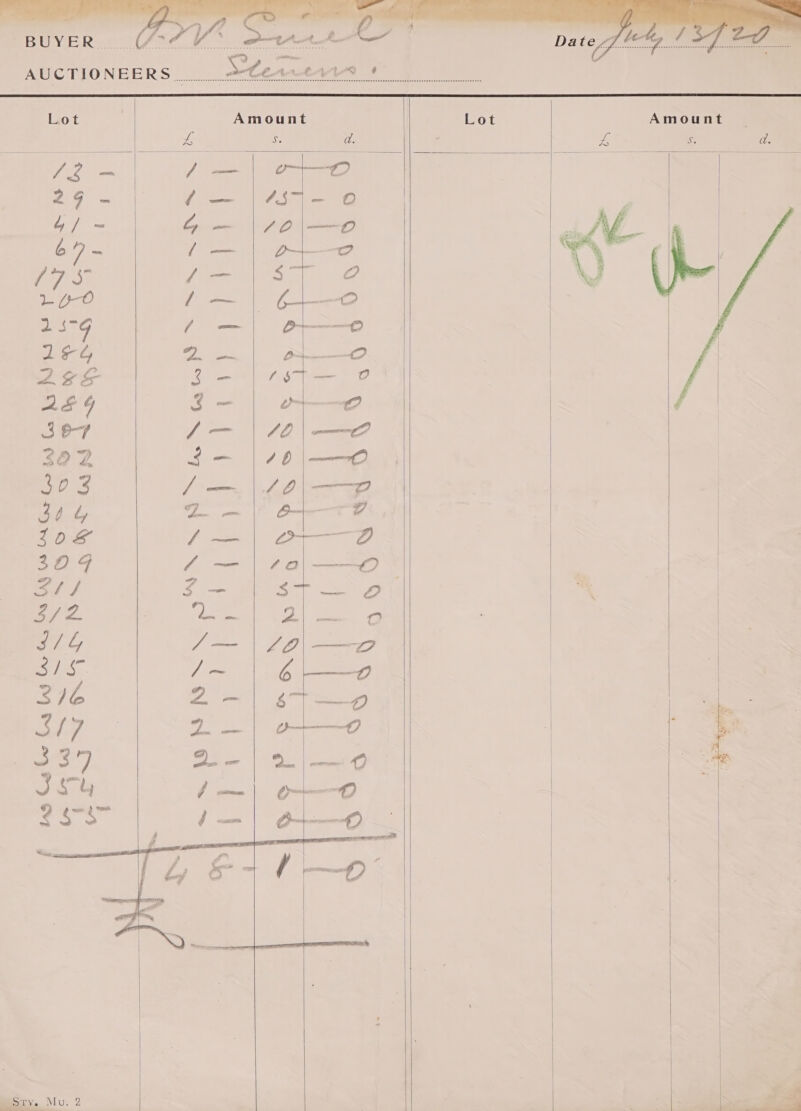 BUYER Date July 13/20
AUCTIONEERS Stevens.
Lot Amount Lot Amount
£ s. d. £ s. d.
13 - 1 — 0 — 0
29 - 1 — 15 — 0
41 - 4 — 10 — 0
67 - 1 — 0 — 0
175 1 — 5 — 0
200 1 — 6 — 0
259 1 — 0 — 0
284 2 — 0 — 0
288 3 — 15 — 0
289 3 — 0 — 0
301 1 — 10 — 0
302 3 — 10 — 0
303 1 — 10 — 0
304 2 — 0 — 0
308 1 — 0 — 0
309 1 — 10 — 0
311 3 — 5 — 0
312 2 — 2 — 0
314 1 — 10 — 0
315 1 — 6 — 0
316 2 — 5 — 0
317 2 — 0 — 0
337 2 — 2 — 0
354 1 — 0 — 0
355 1 — 0 — 0
48 - 1 — 0
OK
Sty. Mu. 2